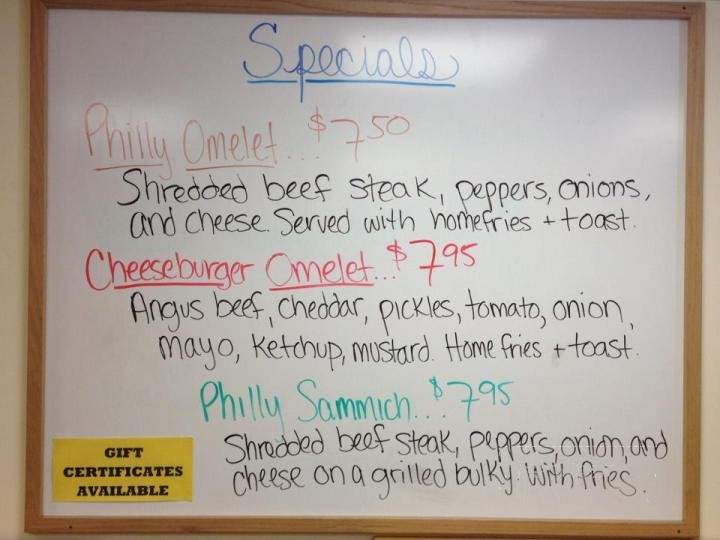 Specials
Philly Omelet... $7.50
Shredded beef steak, peppers, onions,
and cheese. Served with homefries + toast.
Cheeseburger Omelet... $7.95
Angus beef, cheddar, pickles, tomato, onion,
mayo, ketchup, mustard. Home fries + toast.
Philly Sammich... $7.95
Shredded beef steak, peppers, onion, and
cheese on a grilled bulky. With fries.
GIFT
CERTIFICATES
AVAILABLE